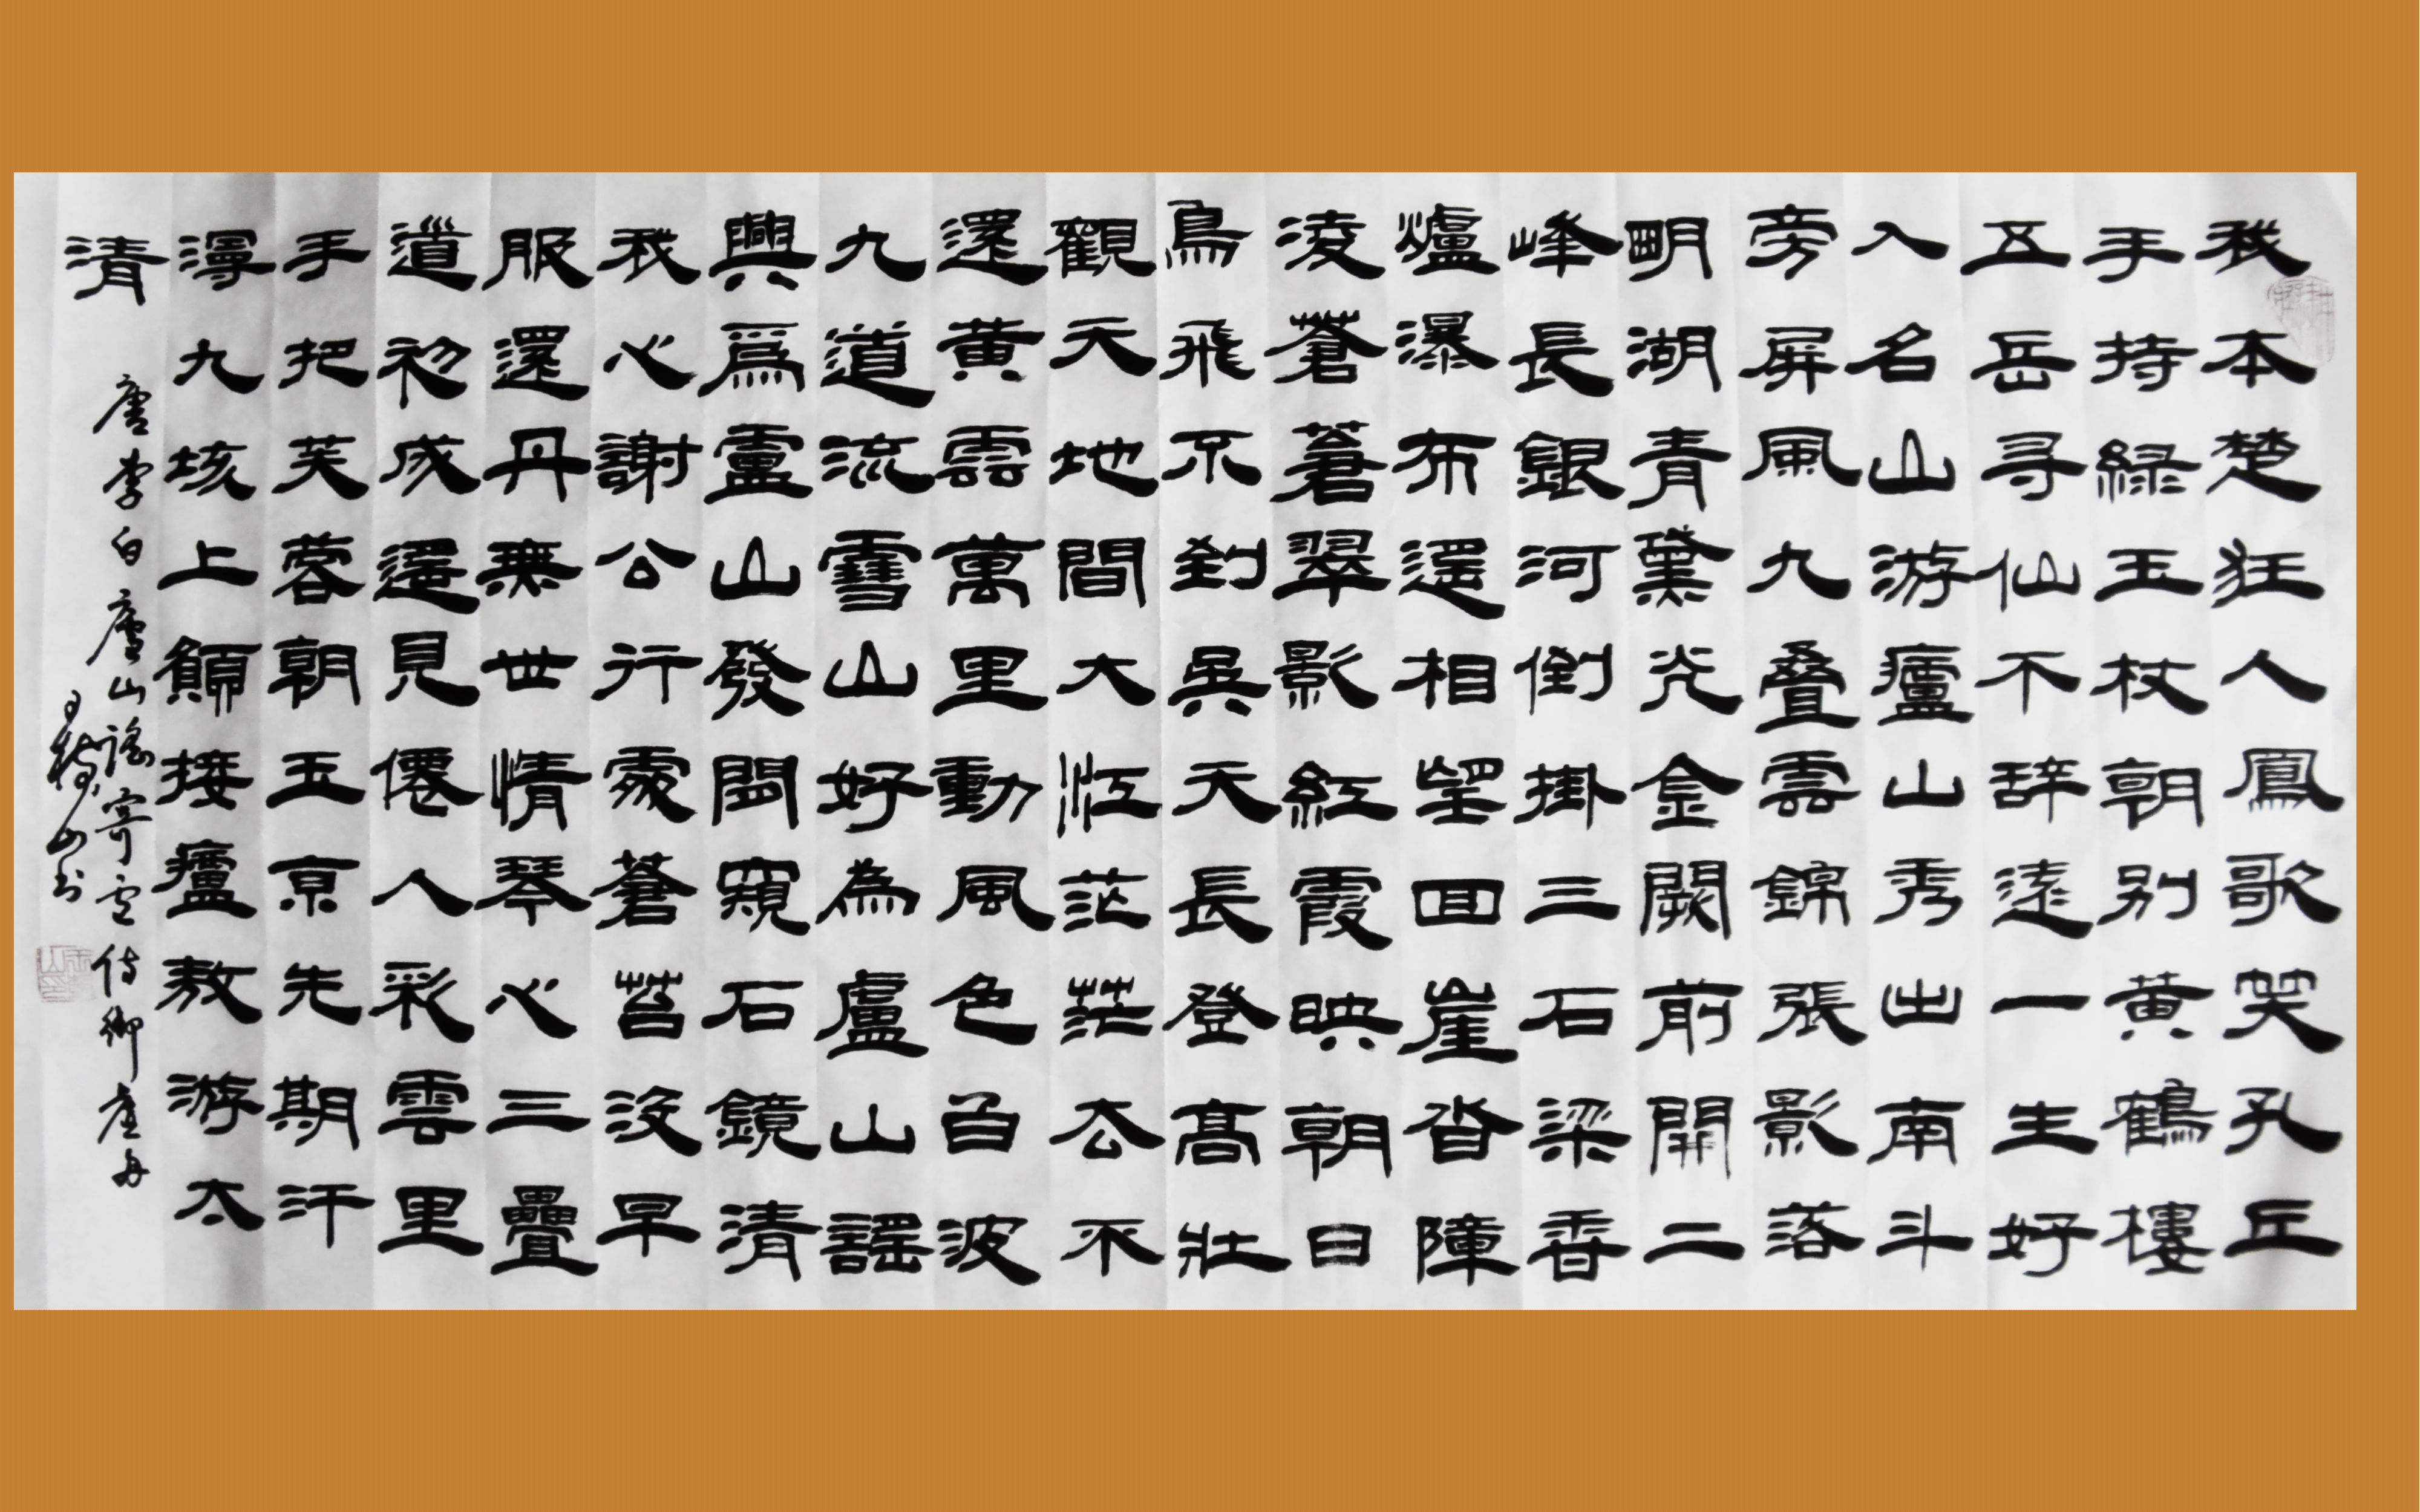 我本楚狂人鳳歌笑孔丘
手持緑玉杖朝别黄鶴樓
五岳寻仙不辞遠一生好
入名山游廬山秀出南斗
旁屏風九叠雲錦張影落
明湖青黛光金闕前開二
峰長銀河倒掛三石梁香
爐瀑布遥相望回崖沓障
凌蒼蒼翠影紅霞映朝日
鳥飛不到吳天長登髙壯
觀天地間大江茫茫去不
還黄雲萬里動風色白波
九道流雪山好為盧山謡
興爲盧山發閒窺石鏡清
我心謝公行處蒼苔没早
服還丹無世情琴心三疊
道初成遥見僊人彩雲里
手把芙蓉朝玉京先期汗
漫九垓上願接廬敖游太
清
唐李白廬山謡寄盧侍御虚舟
山书